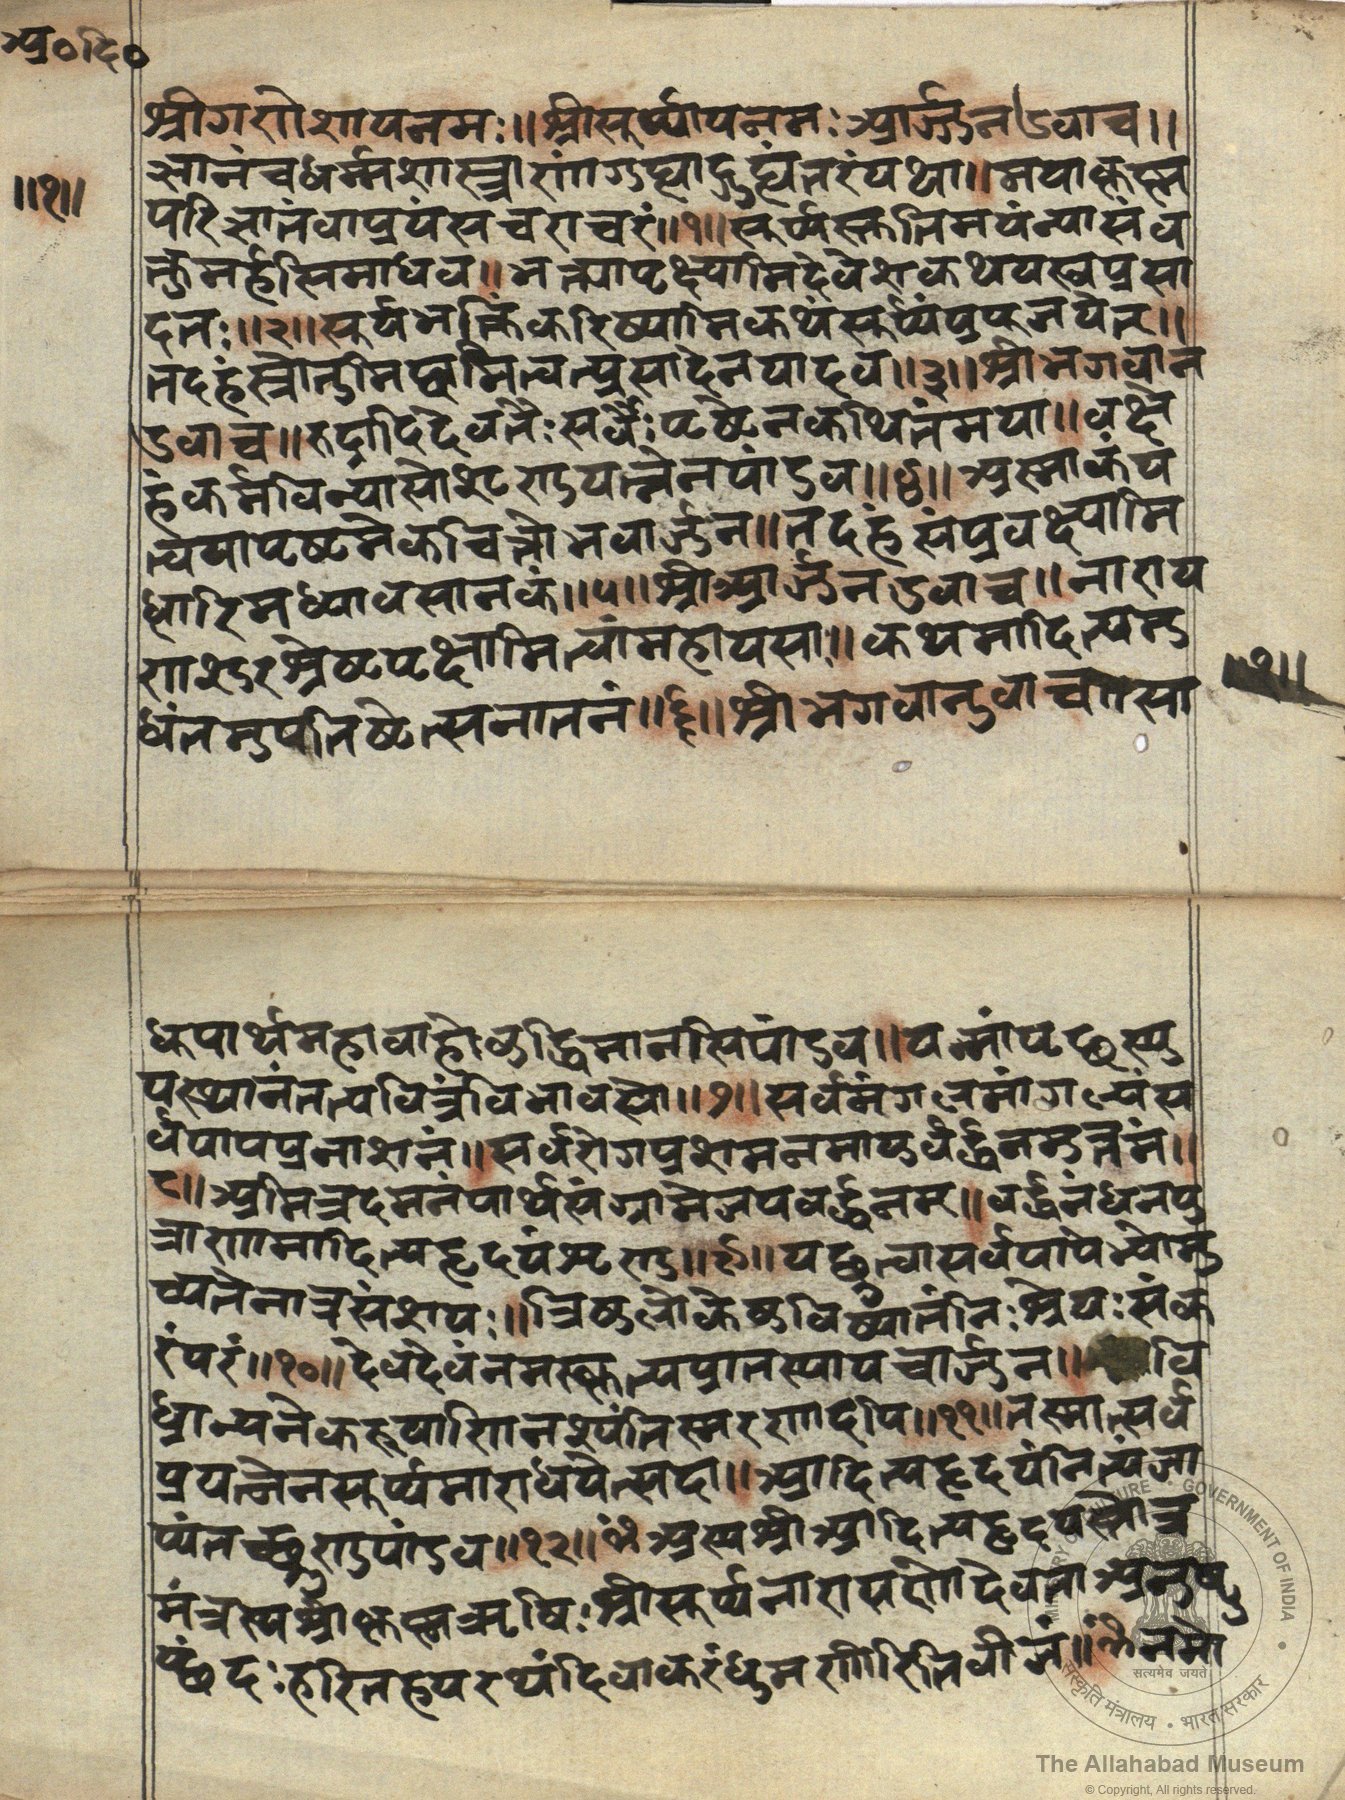 आ०दि०
श्रीगणेशायनमः॥श्रीसूर्य्यायनमः आर्ज्जुनउवाच॥
॥१॥
ज्ञानंचधर्म्मशास्त्राणांगुह्याद्गुह्यंतरंयथा॥मयाकृष्ण
परिज्ञानंवाप्रयंसचराचरं॥१॥सूर्य्यस्कतिमयंन्यासंव
क्तुमर्हसिमाधव॥भक्त्यापृक्ष्यामिदेवेशकथयस्वप्रसा
दतः॥२॥सूर्यभक्तिंकरिष्यामिकथंसूर्य्यंप्रपूजयेत्॥
तदहंस्त्रोतुमिछामित्वत्प्रसादेनयादव॥३॥श्रीभगवान
उवाच॥रुद्रादिदेवतैःसर्वैःपृष्टेनकथितंमया॥वक्षे
हंकर्मविन्यासोशृणुयत्नेनपांडव॥४॥अस्माकंयं
त्वयापृष्टमेकचित्तोभवार्ज्जुन॥तदहंसंप्रवक्ष्यामि
धारिमध्यावसानकं॥५॥श्रीआर्ज्जुनउवाच॥नाराय
णशुरश्रेष्टपृक्षामित्वांमहायसा॥कथमादित्यमु
॥१॥
धंतमुपतिष्टेत्सनातनं॥६॥श्रीभगवानुवाच॥सा
धूपार्थमहावाहोवुद्धिमानसिपांडव॥यन्मांपृछस्यु
पस्थानंतत्पवित्रंविभावसो॥७॥सर्वमंगलमांगल्यंस
र्वपापप्रनाशनं॥सर्वरोगप्रशमनमायुर्वर्द्धनमुत्तमं॥
८॥अमित्रदमनंपार्थसंग्रामेजयवर्द्धनम्॥वर्द्धनंधनपु
त्राणामादित्यहृदयंशृणु॥९॥यछ्रुत्वासर्वपापेभ्योमु
च्यतेनात्रसंशयः॥त्रिषुलोकेषुविख्यातंनिःश्रेयःसंक
रंपरं॥१०॥देवदेवंनमस्कृत्यप्रातस्थायचार्ज्जुन॥ वि
घ्नान्यनेकरूपाणिनश्यंतिस्मरणादपि॥११॥तस्मात्सर्व
प्रयत्नेनसूर्य्यमाराधयेत्सदा॥आदित्यहृदयंनित्यंजा
प्यंतच्छ्रुणुपांडव॥१२॥ॐअस्यश्रीआदित्यहृदयस्तोत्र
मंत्रस्यश्रीकृष्णऋषिःश्रीसूर्य्यनारायणोदेवताअनुष्टु
प्छंदःहरितहयरथंदिवाकरंधुमणीरितिवीजं॥ॐनमो
MINISTRY OF CULTURE • GOVERNMENT OF INDIA
सत्यमेव जयते
संस्कृति मंत्रालय • भारत सरकार
The Allahabad Museum
© Copyright, All rights reserved.